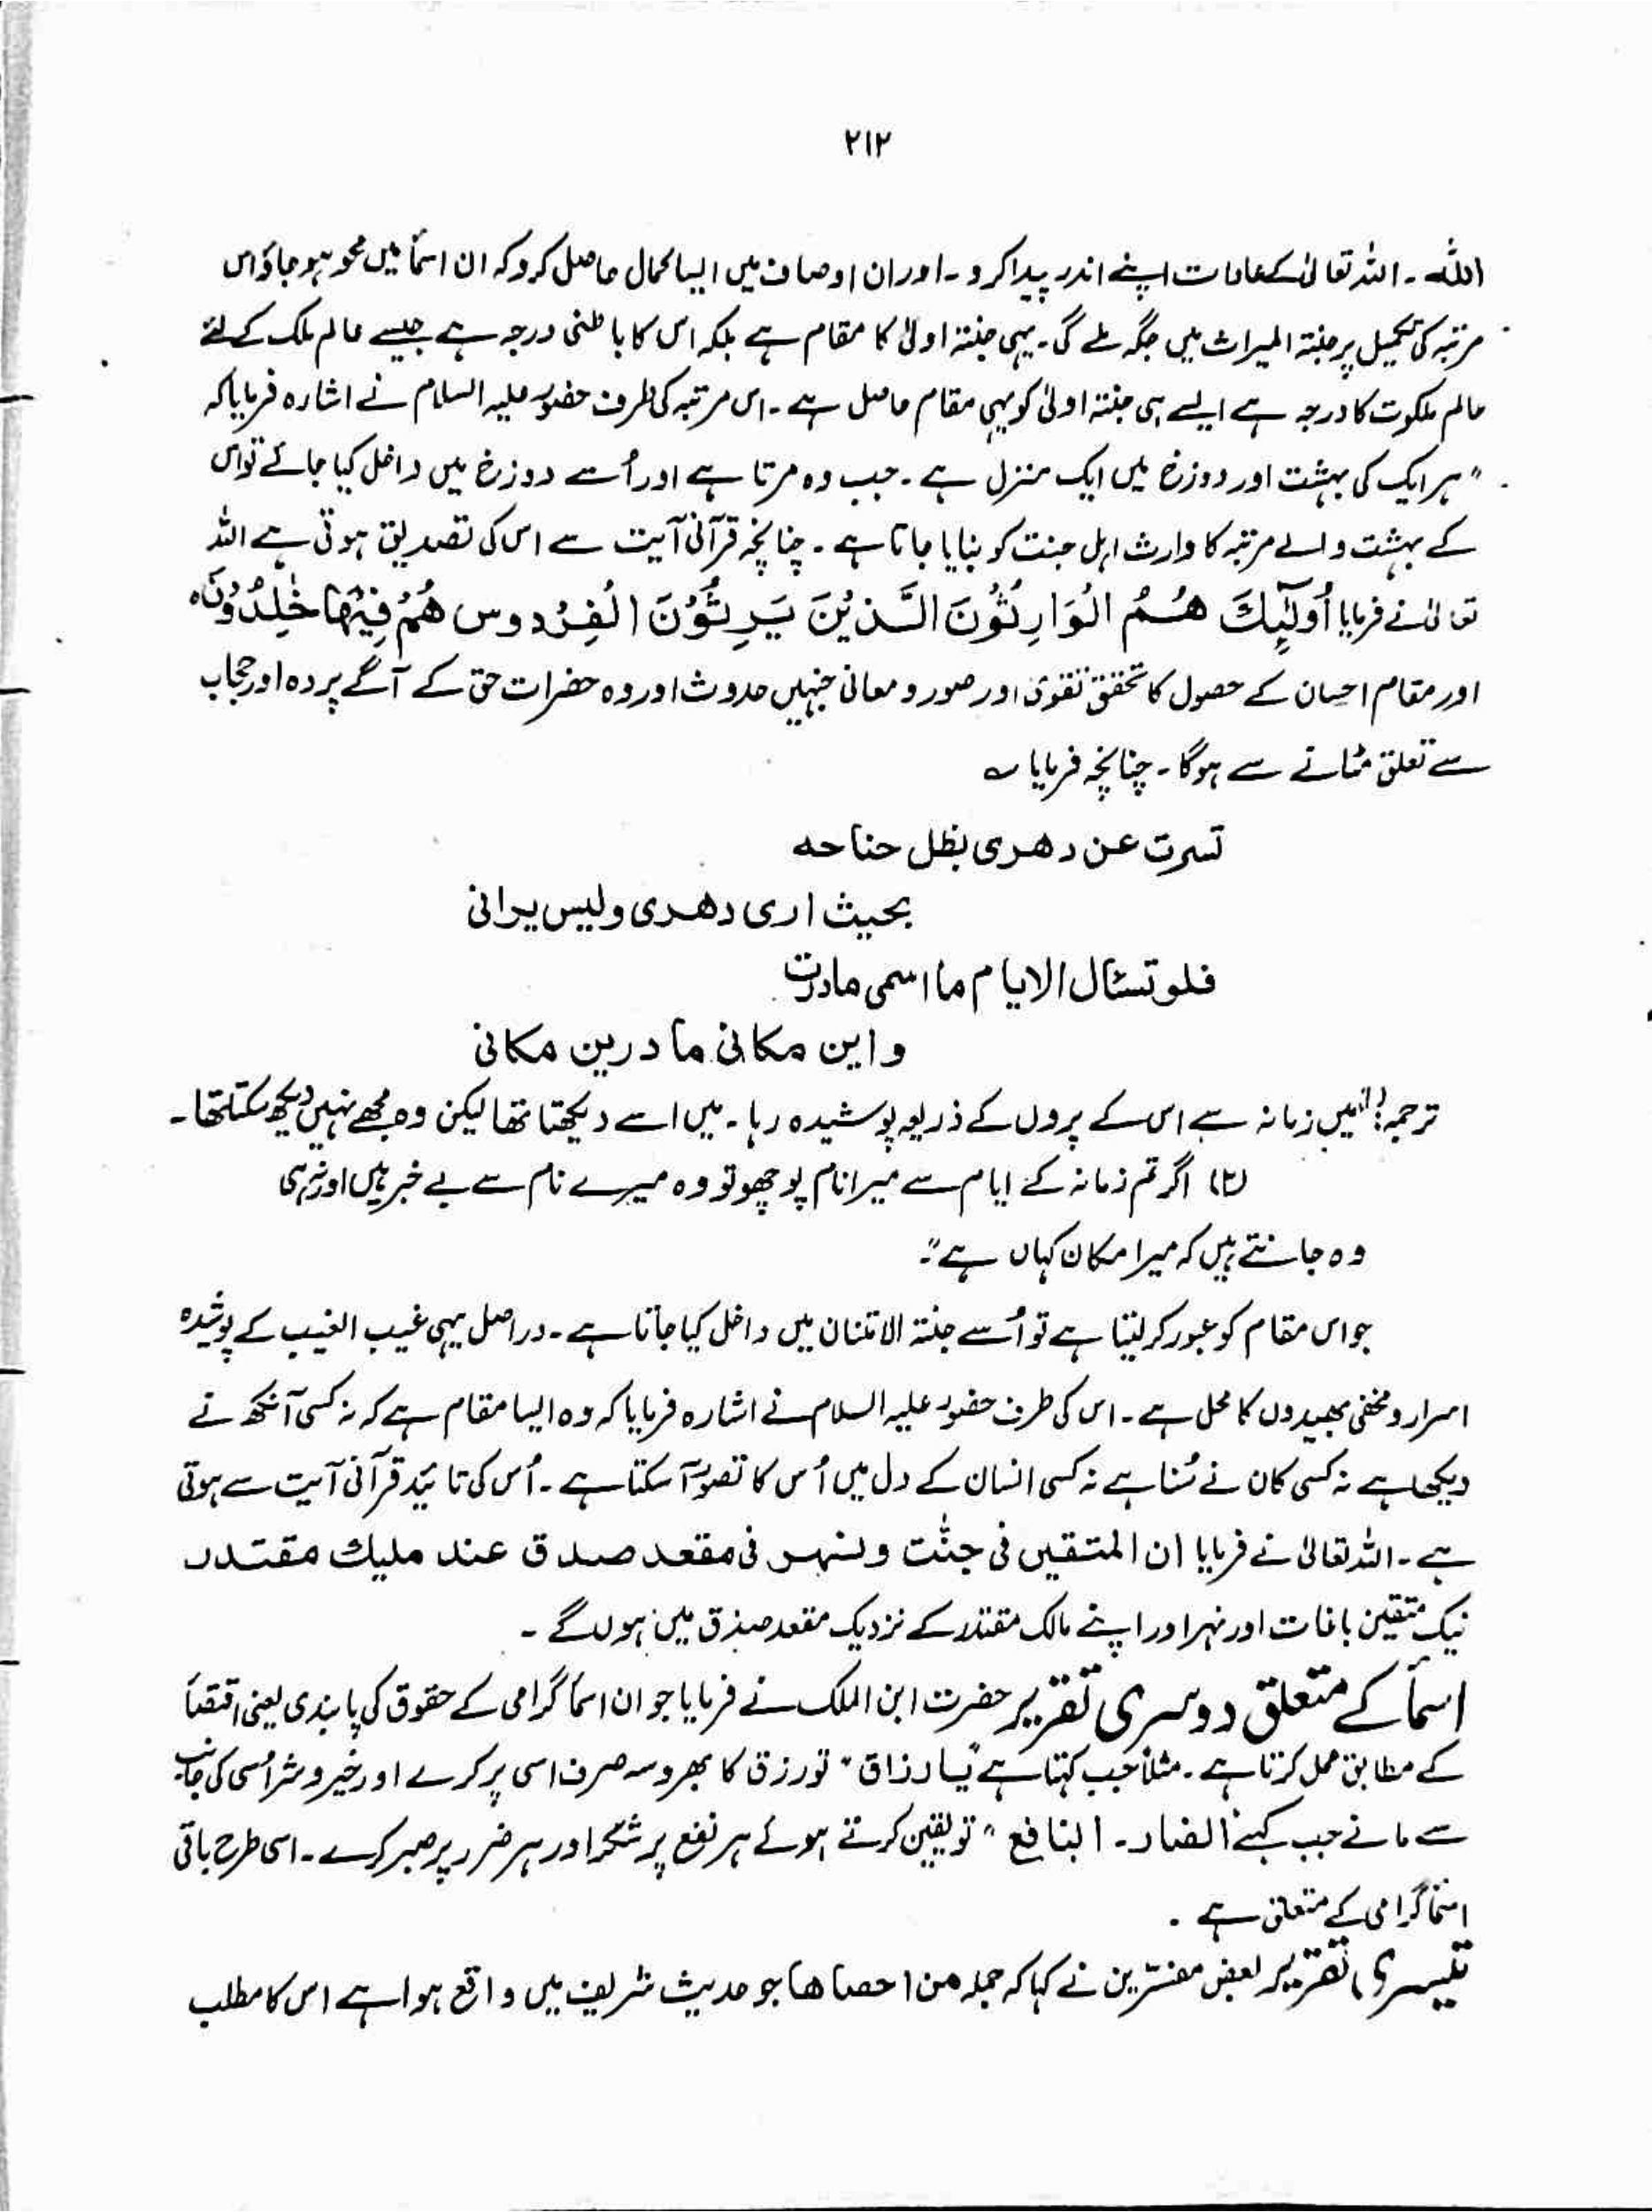 ۲۱۲
اللہ ۔ اللہ تعالیٰ کے عادات اپنے اندر پیدا کرو ۔ اور ان اوصاف میں ایسا کمال حاصل کرو کہ ان اسمأ میں محو ہو جاؤ اس
مرتبہ کی تکمیل پر جنتہ المیراث میں جگہ ملے گی ۔ یہی جنتہ اولیٰ کا مقام ہے بلکہ اس کا باطنی درجہ ہے جیسے عالم ملک کے لئے
عالم ملکوت کا درجہ ہے ایسے ہی جنتہ اولیٰ کو یہی مقام حاصل ہے ۔ اس مرتبہ کی طرف حضور علیہ السلام نے اشارہ فرمایا کہ
" ہر ایک کی بہشت اور دوزخ میں ایک منزل ہے ۔ جب وہ مرتا ہے اور اُسے دوزخ میں داخل کیا جائے تو اس
کے بہشت والے مرتبہ کا وارث اہل جنت کو بنایا جاتا ہے ۔ چنانچہ قرآنی آیت سے اس کی تصدیق ہوتی ہے اللہ
تعالیٰ نے فرمایا اُولٰٓئِکَ ھُمُ الْوَارِثُوْنَ الَّذِیْنَ یَرِثُوْنَ الْفِرْدوس ھُمْ فِیْھَا خٰلِدُوْنَ ہ
اور مقام احسان کے حصول کا تحقق تقویٰ اور صور و معانی جنہیں حدوث اور وہ حضرات حق کے آگے پردہ اور حجاب
سے تعلق مٹانے سے ہوگا ۔ چنانچہ فرمایا ؎
تسرت عن دھری بظل حناحه
بحیث اری دھری ولیس یرانی
فلو تسئال الایام ما اسمی مادرت
واین مکانی ما درین مکانی
ترجمہ : "میں زمانہ سے اس کے پروں کے ذریعہ پوشیدہ رہا ۔ میں اسے دیکھتا تھا لیکن وہ مجھے نہیں دیکھ سکتا تھا ۔
(۲) اگر تم زمانہ کے ایام سے میرا نام پوچھو تو وہ میرے نام سے بے خبر ہیں اور نہ ہی
وہ جانتے ہیں کہ میرا مکان کہاں ہے "۔
جو اس مقام کو عبور کر لیتا ہے تو اُسے جنتہ الامتنان میں داخل کیا جاتا ہے ۔ دراصل یہی غیب الغیب کے پوشیدہ
اسرار و مخفی بھیدوں کا محل ہے ۔ اس کی طرف حضور علیہ السلام نے اشارہ فرمایا کہ وہ ایسا مقام ہے کہ نہ کسی آنکھ نے
دیکھا ہے نہ کسی کان نے سُنا ہے نہ کسی انسان کے دل میں اُس کا تصور آ سکتا ہے ۔ اُس کی تائید قرآنی آیت سے ہوتی
ہے ۔ اللہ تعالیٰ نے فرمایا ان المتقین فی جنّٰت ونہر فی مقعد صدق عند ملیك مقتدر
نیک متقین باغات اور نہر اور اپنے مالک مقتدر کے نزدیک مقعد صدق میں ہوں گے ۔
اسمأ کے متعلق دوسری تقریر حضرت ابن الملک نے فرمایا جو ان اسمأ گرامی کے حقوق کی پابندی یعنی اقتضأ
کے مطابق عمل کرتا ہے ۔ مثلاً جب کہتا ہے "یا رزاق " تو رزق کا بھروسہ صرف اسی پر کرے اور خیر و شر اُسی کی جانب
سے مانے جب کہے "الضار ۔ النافع " تو یقین کرتے ہوئے ہر نفع پر شکر اور ہر ضرر پر صبر کرے ۔ اسی طرح باقی
اسمأ گرامی کے متعلق ہے ۔
تیسری تقریر بعض مفسّرین نے کہا کہ جملہ من احصاھا جو حدیث شریف میں واقع ہوا ہے اس کا مطلب